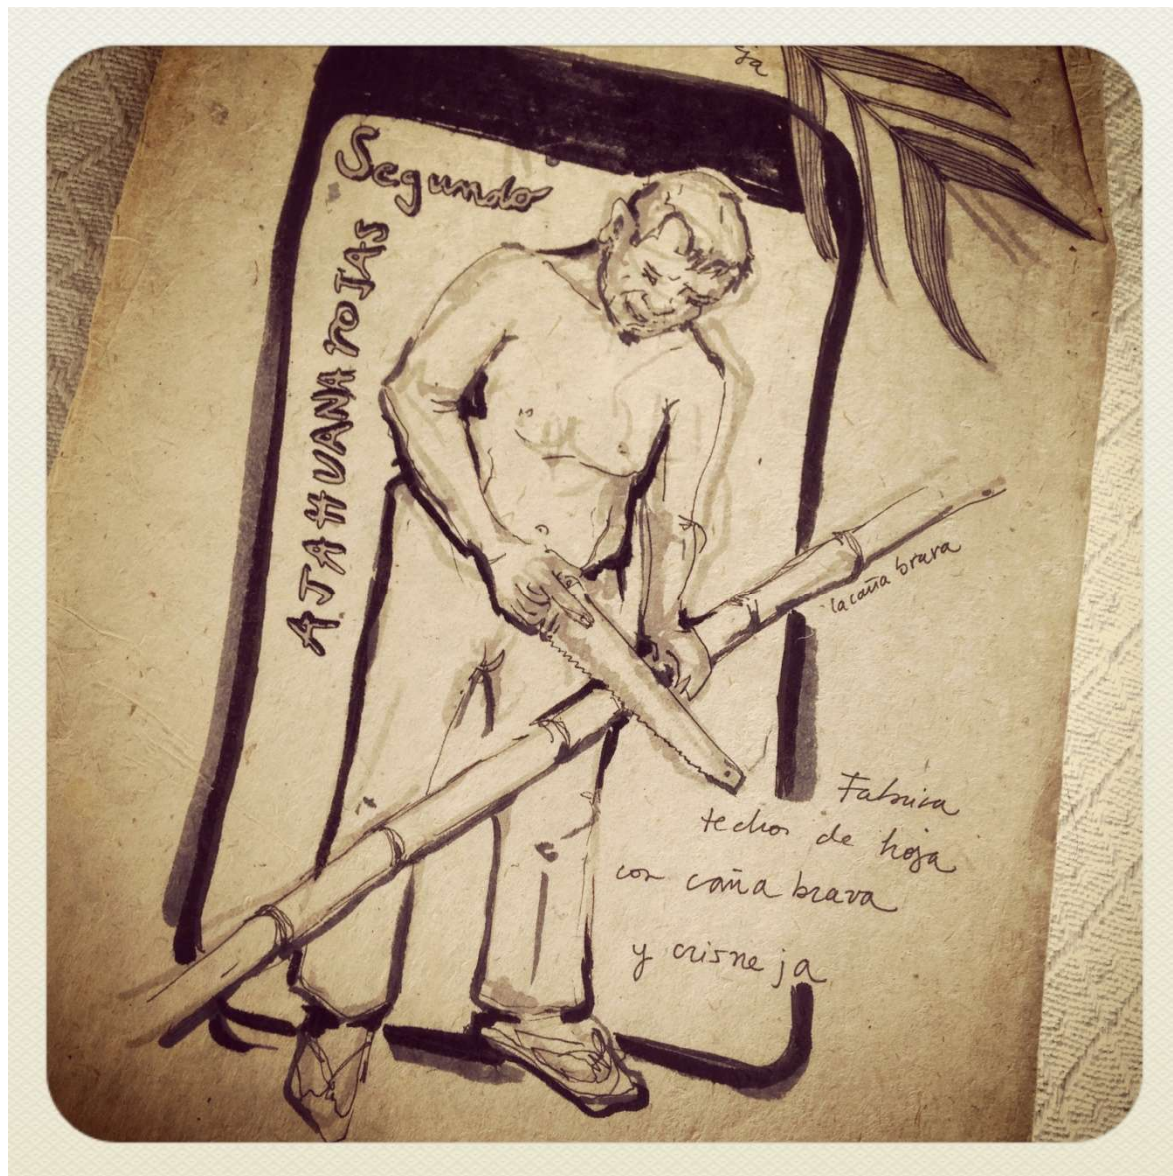 ja
Segundo
AJAHUANA ROJAS
la caña brava
Fabrica
techos de hoja
con caña brava
y crisneja